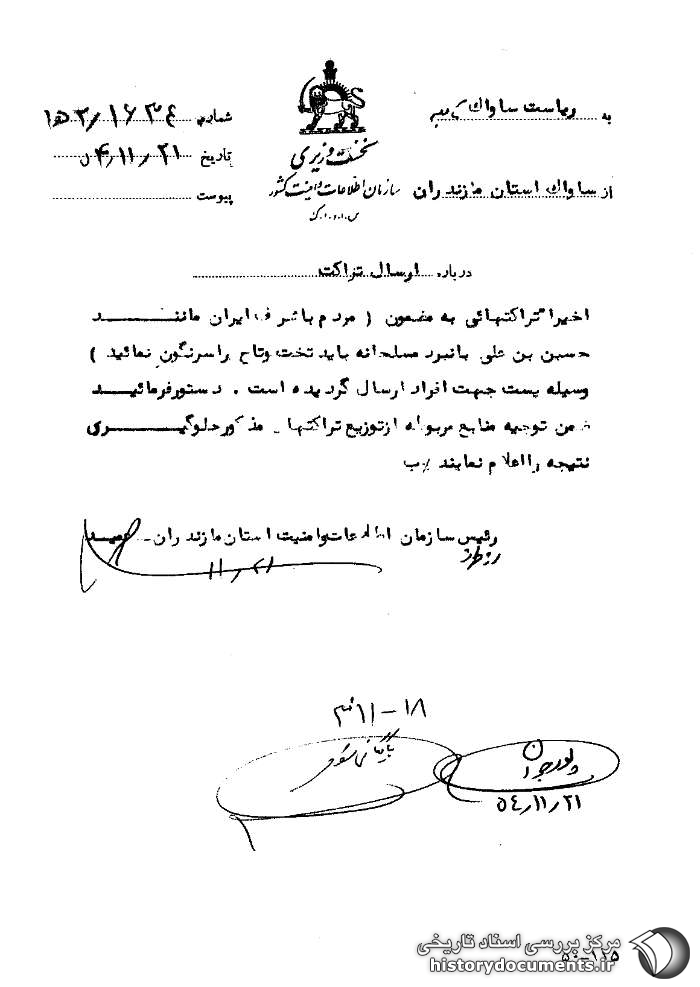 به ریاست ساواک
شماره ۱۶۳۴/۱۵۳
نخست وزیری
تاریخ ۵۴/۱۱/۲۱
سازمان اطلاعات و امنیت کشور
س.ا.و.ا.ک
از ساواک استان مازندران
پیوست
درباره ارسال تراکت
اخیرا تراکتهائی به مضمون ( مردم باشرف ایران مانند
حسین بن علی بانبرد مسلحانه باید تخت وتاج راسرنگون نمائید )
وسیله پست جهت افراد ارسال گردیده است . دستورفرمائید
ضمن توجیه منابع مربوطه ازتوزیع تراکتهای مذکورجلوگیری
نتیجه رااعلام نمایند
رئیس سازمان اطلاعات وامنیت استان مازندران
۱۱/۲۱
۱۱-۱۸
بایگانی شود
۵۴/۱۱/۲۱
مرکز بررسی اسناد تاریخی
historydocuments.ir
۵۰-۱۲۵